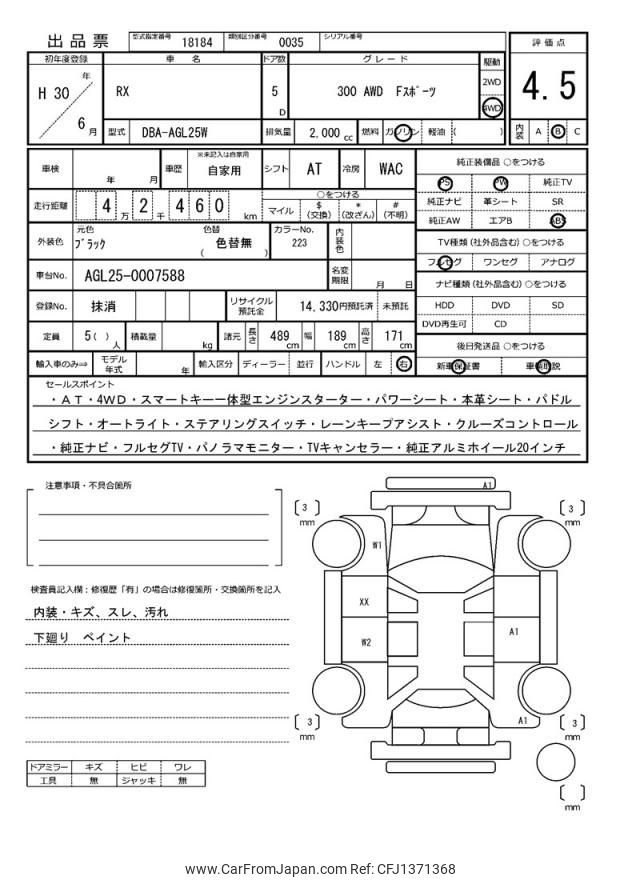 出品票 型式指定番号 18184 類別区分番号 0035 シリアル番号
初年度登録 車名 ドア数 グレード 駆動 評価点
H 30 年 6 月 RX 5 D 300 AWD Fスポーツ 2WD 4WD 4.5
型式 DBA-AGL25W 排気量 2,000 cc 燃料 ガソリン 軽油 ( ) 内装 A B C
車検 年 月 車歴 ※未記入は自家用 自家用 シフト AT 冷房 WAC
走行距離 4 万 2 千 4 6 0 km ○をつける マイル $ (交換) * (改ざん) # (不明)
外装色 元色 ブラック 色替 ( 色替無 ) カラーNo. 223 内装色
車台No. AGL25-0007588 名変期限 月 日
登録No. 抹消 リサイクル預託金 14,330円預託済 未預託
定員 5( ) 人 積載量 kg 諸元 長さ 489 cm 幅 189 cm 高さ 171 cm
輸入車のみ⇒ モデル年式 年 輸入区分 ディーラー 並行 ハンドル 左 右
純正装備品 ○をつける
PS PW 純正TV
純正ナビ 革シート SR
純正AW エアB ABS
TV種類 (社外品含む) ○をつける
フルセグ ワンセグ アナログ
ナビ種類 (社外品含む) ○をつける
HDD DVD SD
DVD再生可 CD
後日発送品 ○をつける
新車保証書 車輌取説
セールスポイント
・AT・4WD・スマートキー一体型エンジンスターター・パワーシート・本革シート・パドル
シフト・オートライト・ステアリングスイッチ・レーンキープアシスト・クルーズコントロール
・純正ナビ・フルセグTV・パノラマモニター・TVキャンセラー・純正アルミホイール20インチ
注意事項・不具合箇所
検査員記入欄：修復歴「有」の場合は修復箇所・交換箇所を記入
内装・キズ、スレ、汚れ
下廻り ペイント
ドアミラー キズ ヒビ ワレ
工具 無 ジャッキ 無
A1
3 mm
3 mm
W1
XX
W2
A1
A1
3 mm
3 mm
mm
www.CarFromJapan.com Ref: CFJ1371368